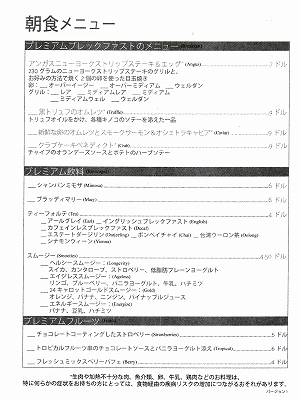 朝食メニュー
プレミアムブレックファストのメニュー (Breakfast)
アンガスニューヨークストリップステーキ＆エッグ" (Angus) 7 ドル
230 グラムのニューヨークストリップステーキのグリルと、
お好みの方法で焼く 2 個の卵を使った目玉焼き
卵：__ オーバーイージー __ オーバーミディアム __ ウェルダン
グリル：__ レア __ ミディアムレア __ ミディアム
__ ミディアムウェル __ ウェルダン
__ 黒トリュフのオムレツ" (Truffle) 9 ドル
トリュフオイルをかけ、各種キノコのソテーを添えた一品
__ 新鮮な卵のオムレツとスモークサーモン＆オシェトラキャビア" (Caviar) 9 ドル
__ クラブケーキベネディクト" (Crab) 9 ドル
チャイブのオランデーズソースとポテトのハーブソテー
プレミアム飲料
__ シャンパンミモザ (Mimosa) 6 ドル
__ ブラッディマリー (Mary) 6 ドル
ティーフォルテ (Tea) 4 ドル
__ アールグレイ (Earl) __ イングリッシュブレックファスト (English)
__ カフェインレスブレックファスト (Decaf)
__ エステートダージリン (Darjeeling) __ ボンベイチャイ (Chai) __ 台湾ウーロン茶 (Oolong)
__ シナモンウィーン (Vienna)
スムージー (Smoothies) 4.50 ドル
__ ヘルシースムージー： (Longevity)
スイカ、カンタロープ、ストロベリー、低脂肪プレーンヨーグルト
__ エイジレススムージー： (Ageless)
リンゴ、ブルーベリー、バニラヨーグルト、牛乳、ハチミツ
__ 24 キャロットゴールドスムージー： (Gold)
オレンジ、バナナ、ニンジン、パイナップルジュース
__ エネルギースムージー： (Energizer)
バナナ、豆乳、ハチミツ
プレミアムフルーツ
__ チョコレートコーティングしたストロベリー (Strawberries) 5 ドル
__ トロピカルフルーツ串のチョコレートソースとバニラヨーグルト添え (Tropical) 6 ドル
__ フレッシュミックスベリーパフェ (Berry) 4 ドル
"生肉や加熱不十分な肉、魚介類、卵、牛乳、鶏肉などのお料理は、
特に何らかの症状をお持ちの方にとっては、食物経由の疾病リスクの増加につながるおそれがあります。
バージョン 1